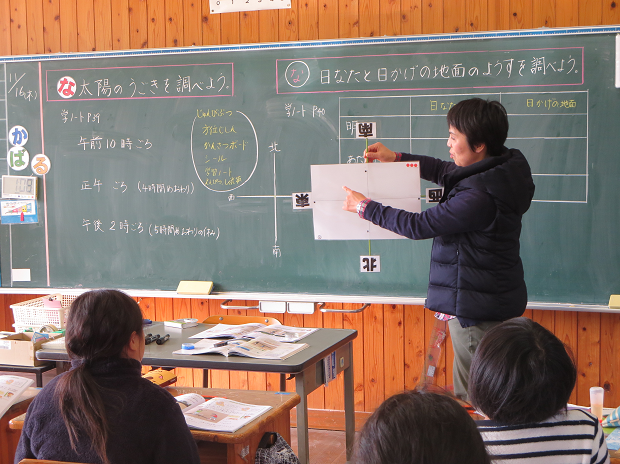 11/16(木)
な 太陽のうごきを調べよう。
学ノート P39
午前10時ごろ
正午 ごろ (4時間めおわり)
午後 2時ごろ (5時間めおわりの休み)
じゅんびぶつ
方位じしん
かんさつボード
シール
学習ノート
北
西
南
かば
な 日なたと日かげの地面のようすを調べよう。
学ノート P40
日なた
日かげの地面
明
南
東
西
北